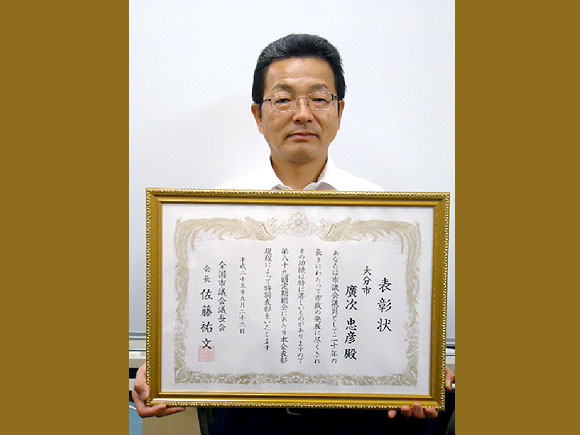 表彰状
大分市
廣次忠彦殿
あなたは市議会議員として二十年の
長きにわたって市政の発展に尽くされ
その功績は特に著しいものがありますので
第八十九回定期総会にあたり本会表彰
規程によって特別表彰をいたします
平成二十五年五月二十二日
全国市議会議長会
会長 佐藤祐文